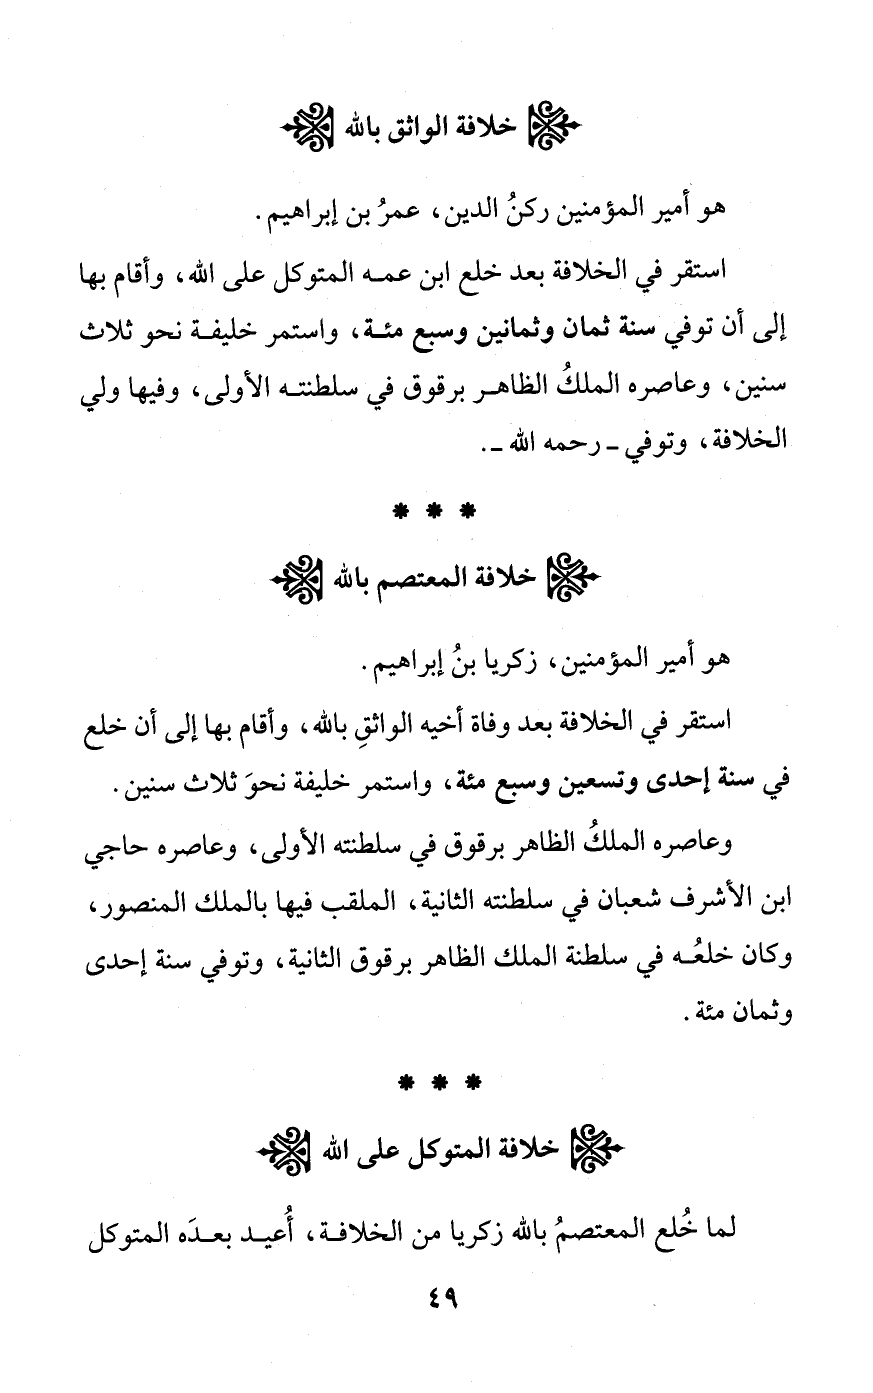 خلافة الواثق بالله
هو أمير المؤمنين ركنُ الدين، عمرُ بن إبراهيم.
استقر في الخلافة بعد خلع ابن عمه المتوكل على الله، وأقام بها
إلى أن توفي سنة ثمان وثمانين وسبع مئة، واستمر خليفة نحو ثلاث
سنين، وعاصره الملكُ الظاهر برقوق في سلطنته الأولى، وفيها ولي
الخلافة، وتوفي - رحمه الله -.
* * *
خلافة المعتصم بالله
هو أمير المؤمنين، زكريا بنُ إبراهيم.
استقر في الخلافة بعد وفاة أخيه الواثقِ بالله، وأقام بها إلى أن خلع
في سنة إحدى وتسعين وسبع مئة، واستمر خليفة نحوَ ثلاث سنين.
وعاصره الملكُ الظاهر برقوق في سلطنته الأولى، وعاصره حاجي
ابن الأشرف شعبان في سلطنته الثانية، الملقب فيها بالملك المنصور،
وكان خلعُه في سلطنة الملك الظاهر برقوق الثانية، وتوفي سنة إحدى
وثمان مئة.
* * *
خلافة المتوكل على الله
لما خُلع المعتصمُ بالله زكريا من الخلافة، أُعيد بعدَه المتوكل
٤٩